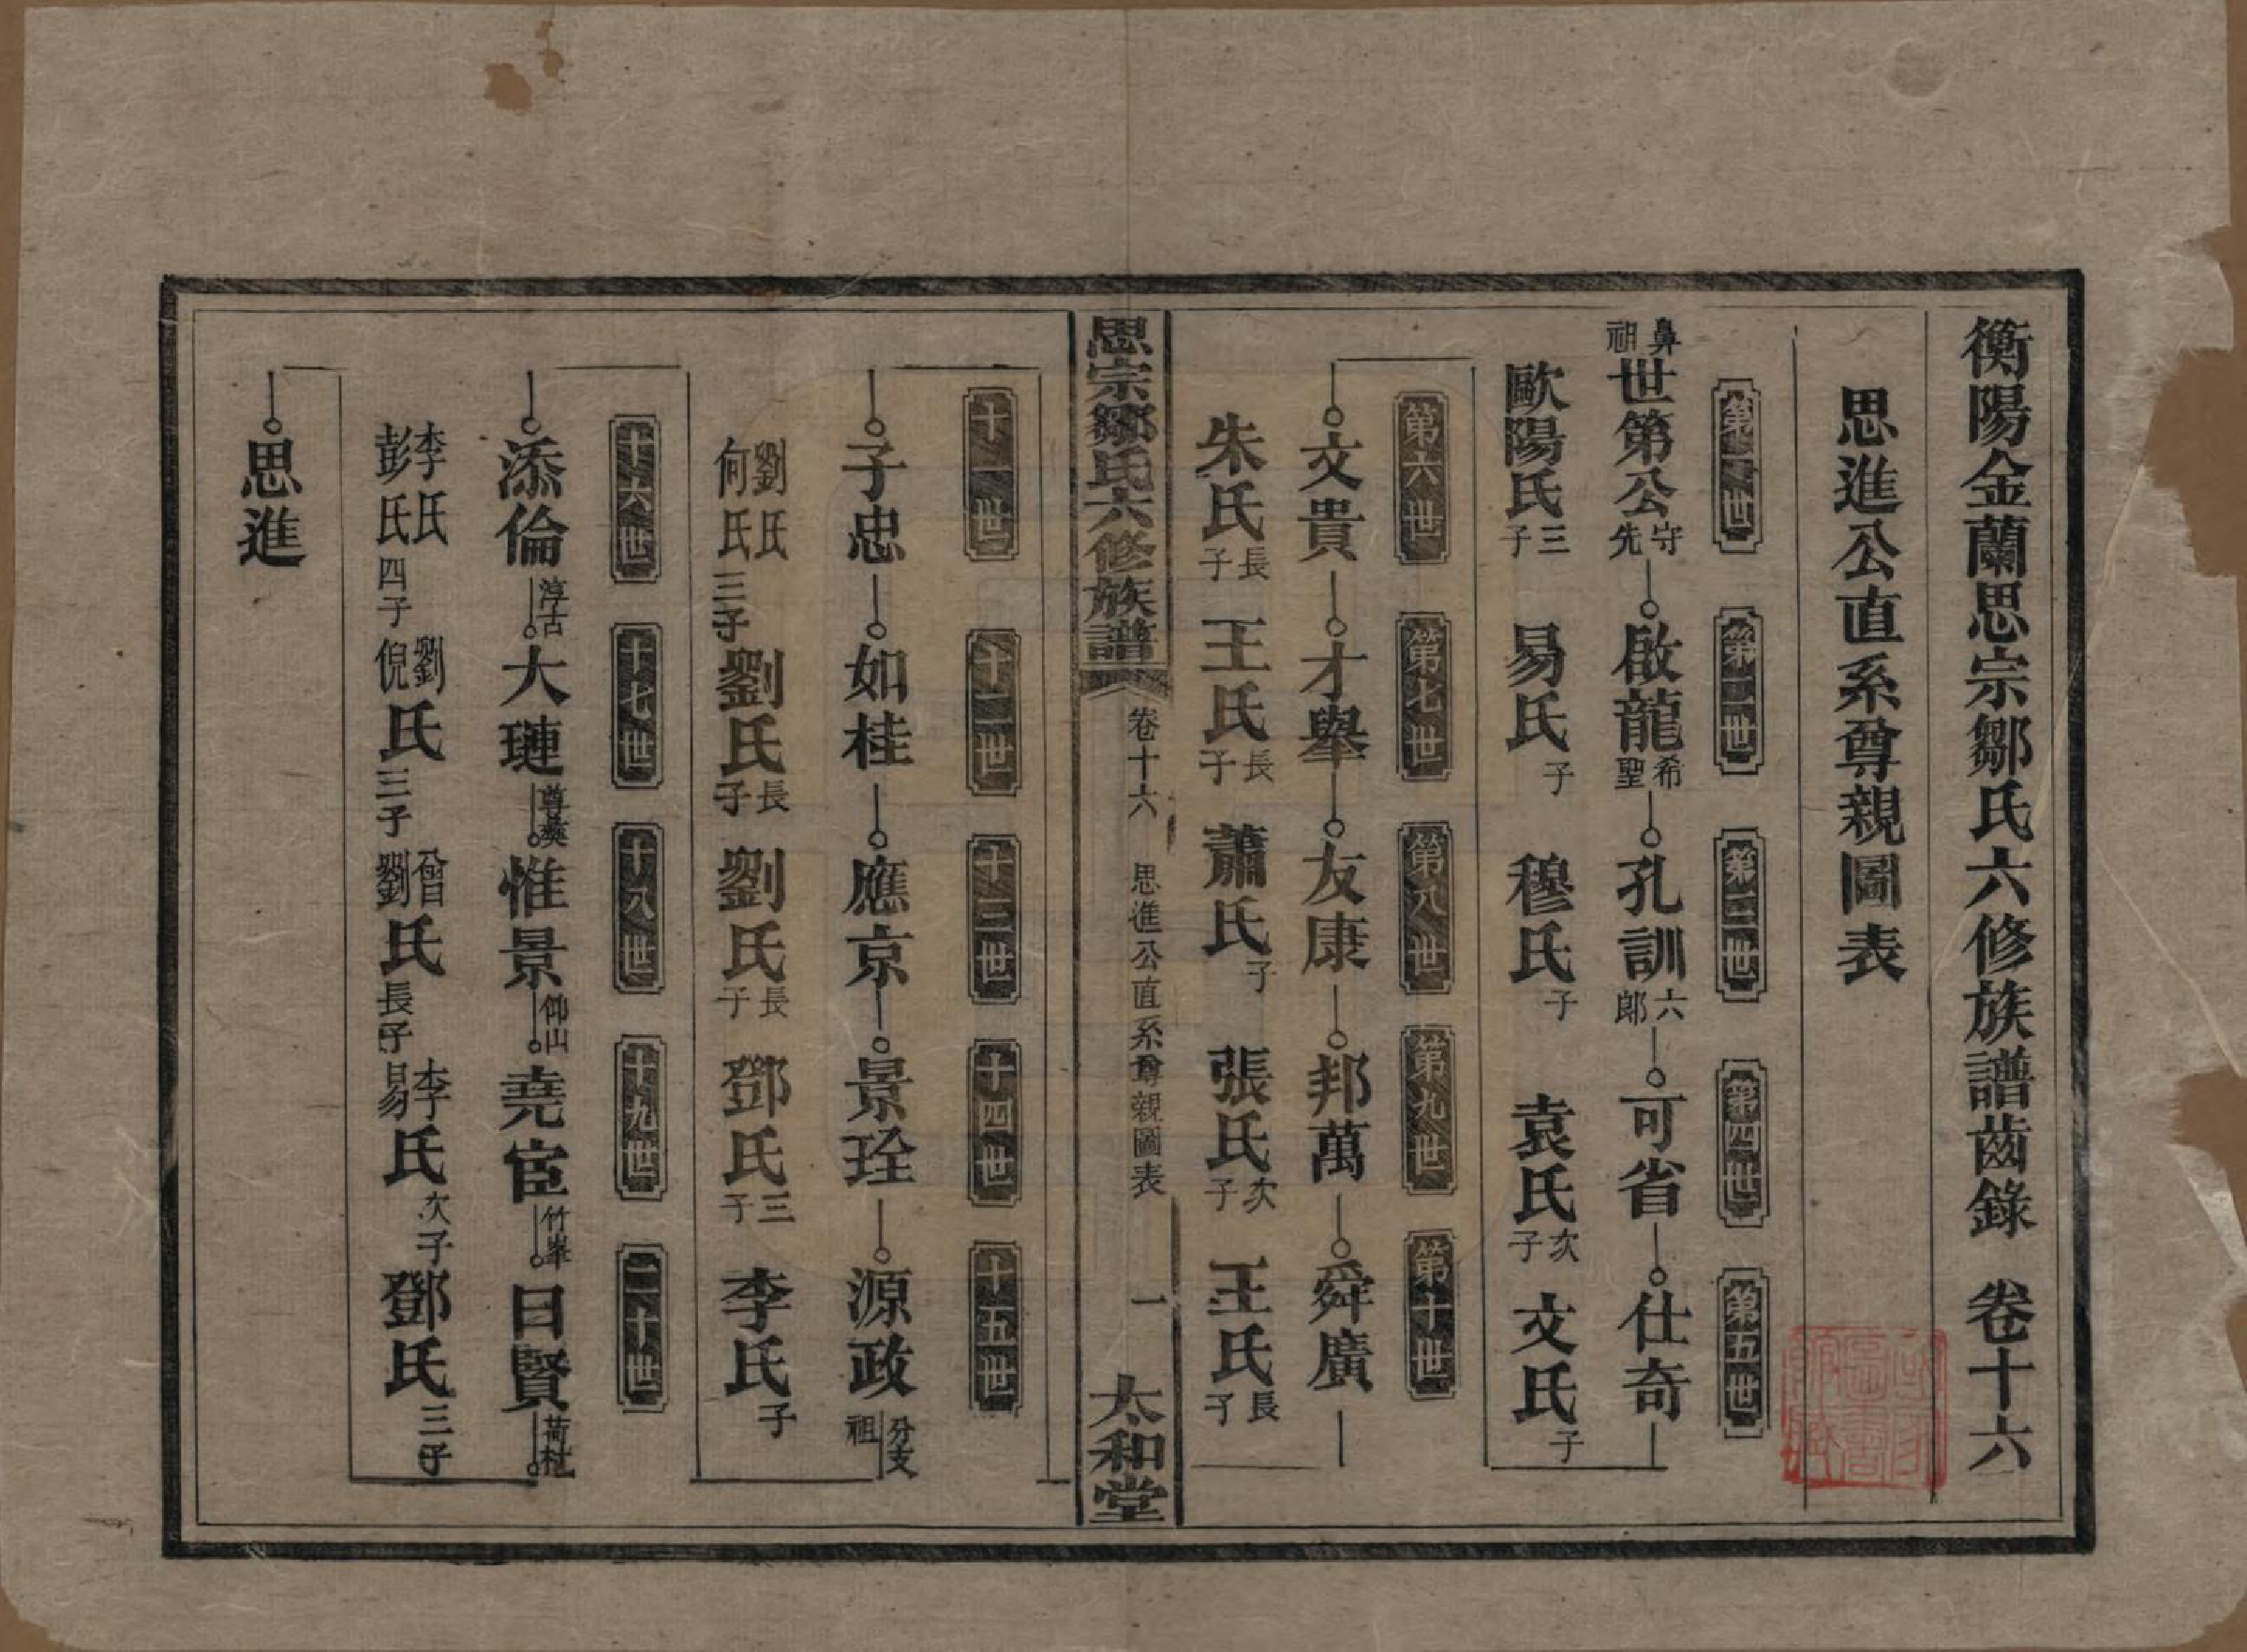 衡陽金蘭思宗鄒氏六修族譜齒錄 卷十六
思進公直系尊親圖表
第一世 第二世 第三世 第四世 第五世
鼻祖 世第公 守先 啟龍 希聖 孔訓 六郎 可省 仕奇
歐陽氏 三子 易氏 子 穆氏 子 袁氏 次子 文氏 子
第六世 第七世 第八世 第九世 第十世
文貴 才舉 友康 邦萬 舜廣
朱氏 長子 王氏 長子 蕭氏 子 張氏 次子 王氏 長子
思宗鄒氏六修族譜 卷十六 思進公直系尊親圖表 一 太和堂
十一世 十二世 十三世 十四世 十五世
子忠 如桂 應京 景銓 源政 分支祖
劉氏 何氏 三子 劉氏 長子 劉氏 長子 鄧氏 三子 李氏 子
十六世 十七世 十八世 十九世 二十世
添倫 淳古 大璉 尊彝 惟景 仰山 堯宦 竹峯 日賢
李氏 彭氏 四子 劉 倪氏 三子 曾 劉氏 長子 李 易氏 次子 鄧氏 三子
思進